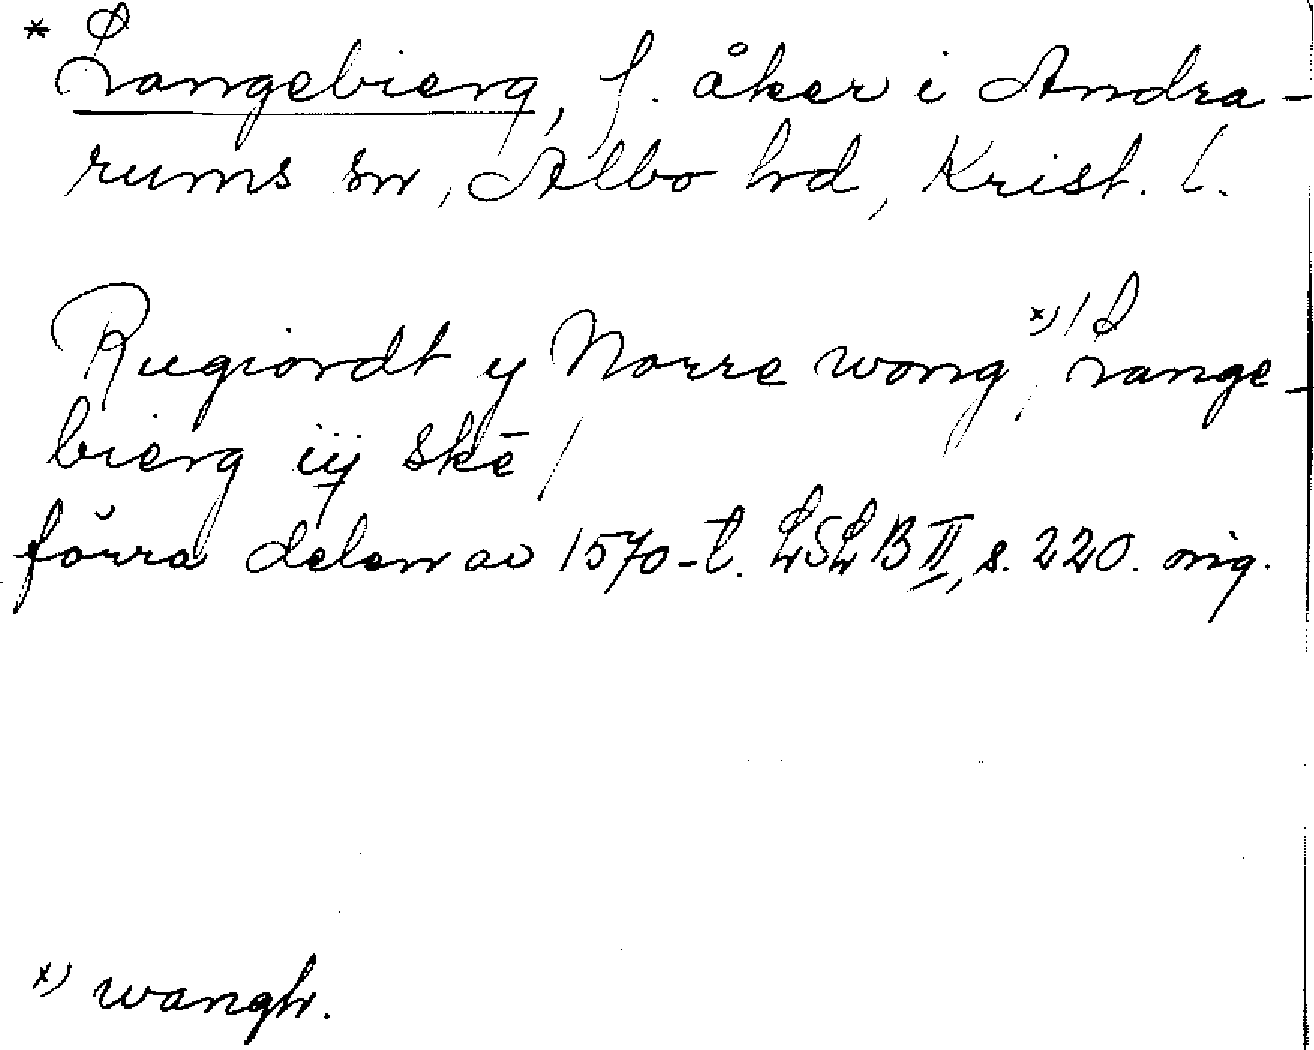 * Langebierg, f. åker i Andra-
rums sn, Albo hd, Krist. l.
Rugiordt y Norre wong *) / Lange-
bierg iij skē /
förra delen av 1570-t. LSLB II, s. 220. orig.
*) wangh.